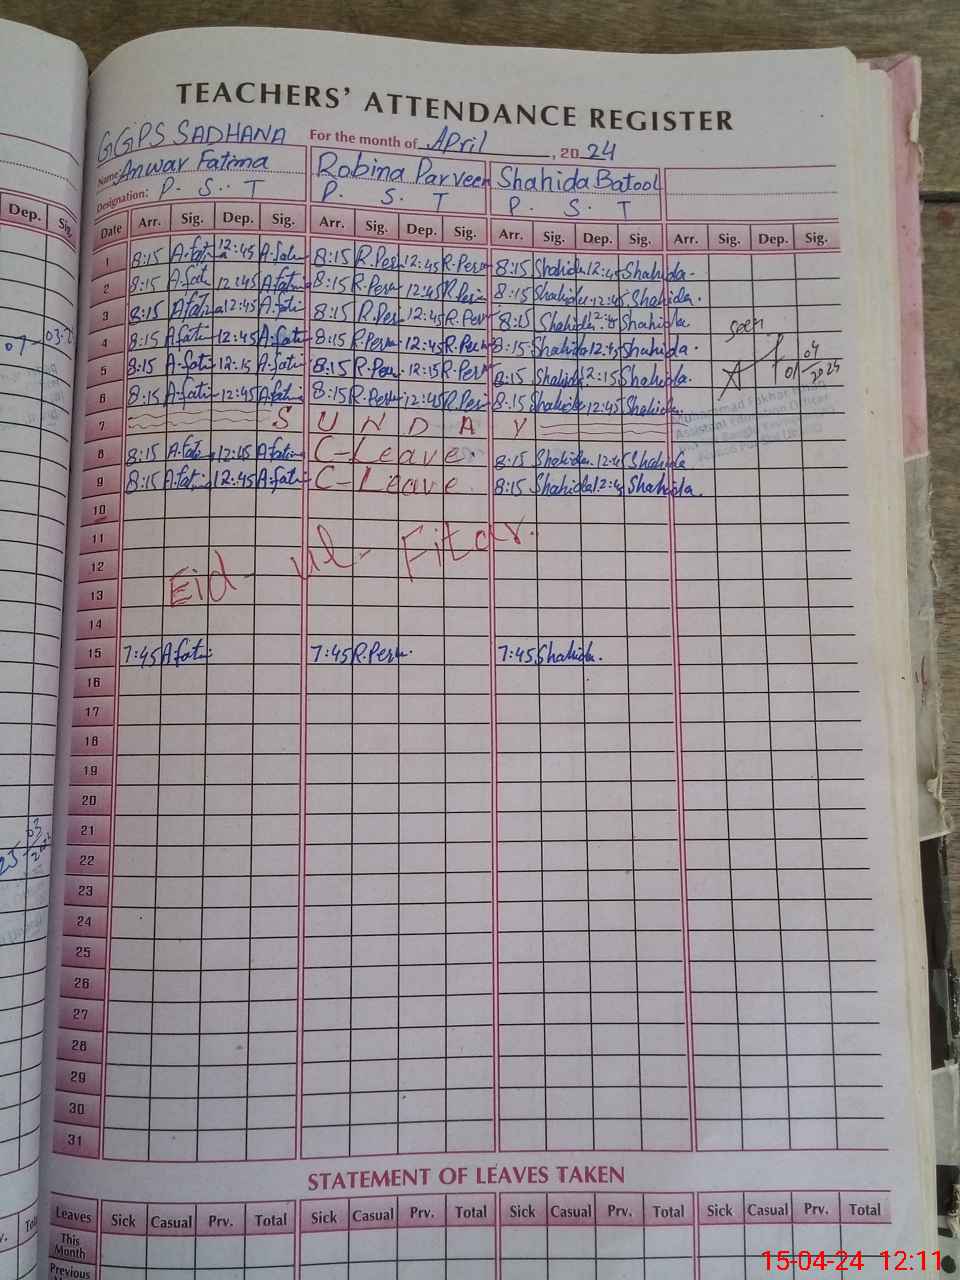 TEACHERS' ATTENDANCE REGISTER
GGPS SADHANA For the month of April, 2024
Name: Anwar Fatima Robina Parveen Shahida Batool
Designation: P. S. T P. S. T P. S. T
Dep. Sig.
Date Arr. Sig. Dep. Sig. Arr. Sig. Dep. Sig. Arr. Sig. Dep. Sig. Arr. Sig. Dep. Sig.
1 8:15 A.fati 12:45 A.fati 8:15 R.Perv 12:45 R.Perv 8:15 Shahida 12:45 Shahida
2 8:15 A.fati 12:45 A.fati 8:15 R.Perv 12:45 R.Perv 8:15 Shahida 12:45 Shahida.
3 8:15 A.fati 12:45 A.fati 8:15 R.Perv 12:45 R.Perv 8:15 Shahida 12:45 Shahida
seen
4 8:15 A.fati 12:45 A.fati 8:15 R.Perv 12:45 R.Perv 8:15 Shahida 12:45 Shahida.
5 8:15 A.fati 12:15 A.fati 8:15 R.Perv 12:15 R.Perv 8:15 Shahida 12:15 Shahida.
6 8:15 A.fati 12:45 A.fati 8:15 R.Perv 12:45 R.Perv 8:15 Shahida 12:45 Shahida.
7 S U N D A Y
8 8:15 A.fati 12:45 A.fati C-Leave. 8:15 Shahida 12:45 Shahida
9 8:15 A.fati 12:45 A.fati C-Leave 8:15 Shahida 12:45 Shahida.
10
11
12
Eid-ul-Fitar.
13
14
15 7:45 A.fati 7:45 R.Perv. 7:45 Shahida.
16
17
18
19
20
21
22
23
24
25
26
27
28
29
30
31
STATEMENT OF LEAVES TAKEN
Leaves Sick Casual Prv. Total Sick Casual Prv. Total Sick Casual Prv. Total Sick Casual Prv. Total
This Month
Previous
15-04-24 12:11